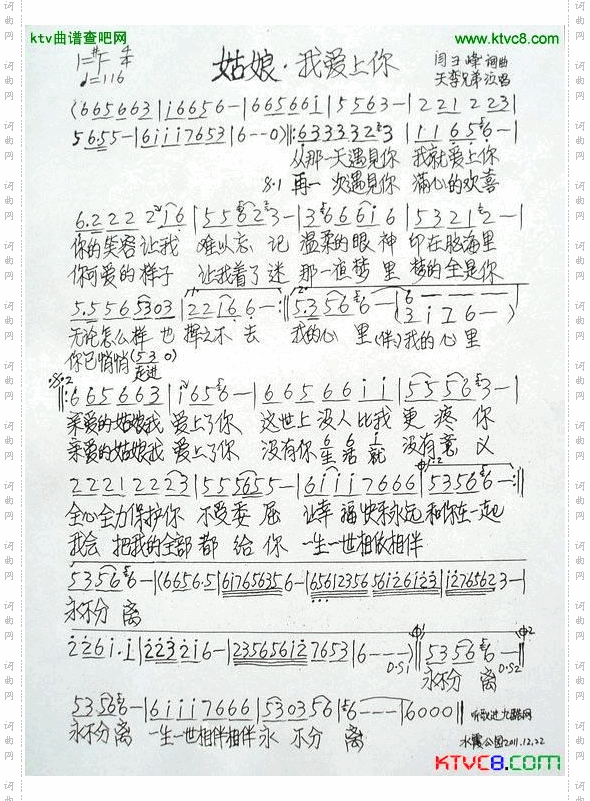 ktv曲谱查吧网
www.ktvc8.com
1=#F 4/4
♩=116
姑娘·我爱上你
闫玉峰 词曲
天李兄弟 演唱
(665663|16656-|665661|5563-|221223|
5655-|61117653|6--0)‖:6333323|11656-|
从那一天遇見你 我就爱上你
8.1 再一次遇见你 满心的欢喜
6.222 216|55623-|366616|53212-|
你的笑容让我 难以忘记 温柔的眼神 印在脑海里
你可爱的样子 让我着了迷 那一夜梦里 梦的全是你
5.556 5303|22166-:‖5.3566-(6---
(3176-)
无论怎么样也 挥之不去 我的心里 (伴)我的心里
你已悄悄(530)
走进
‖:665663|1656-|665661 1|55563-|
亲爱的姑娘我 爱上了你 这世上没人比我更疼你
亲爱的姑娘我 爱上了你 没有你生活就 没有意义
2221 2223|555655-|61117666|535656-:‖
全心全力保护你 不受委屈 让幸福快乐永远和你在一起
我会把我的全部都给你 一生一世相依相伴
535666-|(6656.5|617656356-|65612356 56126123|12765623-|
永不分离
2261.1|2232 16-|235656127653|6---)‖535666-‖
D.S1 D.S2
永不分离
535666-|61117666|530356|6---|6000‖
听歌进九酷网
永不分离 一生一世相伴相伴永不分离
水霞公园2011.12.22
KTVC8.com
词曲网